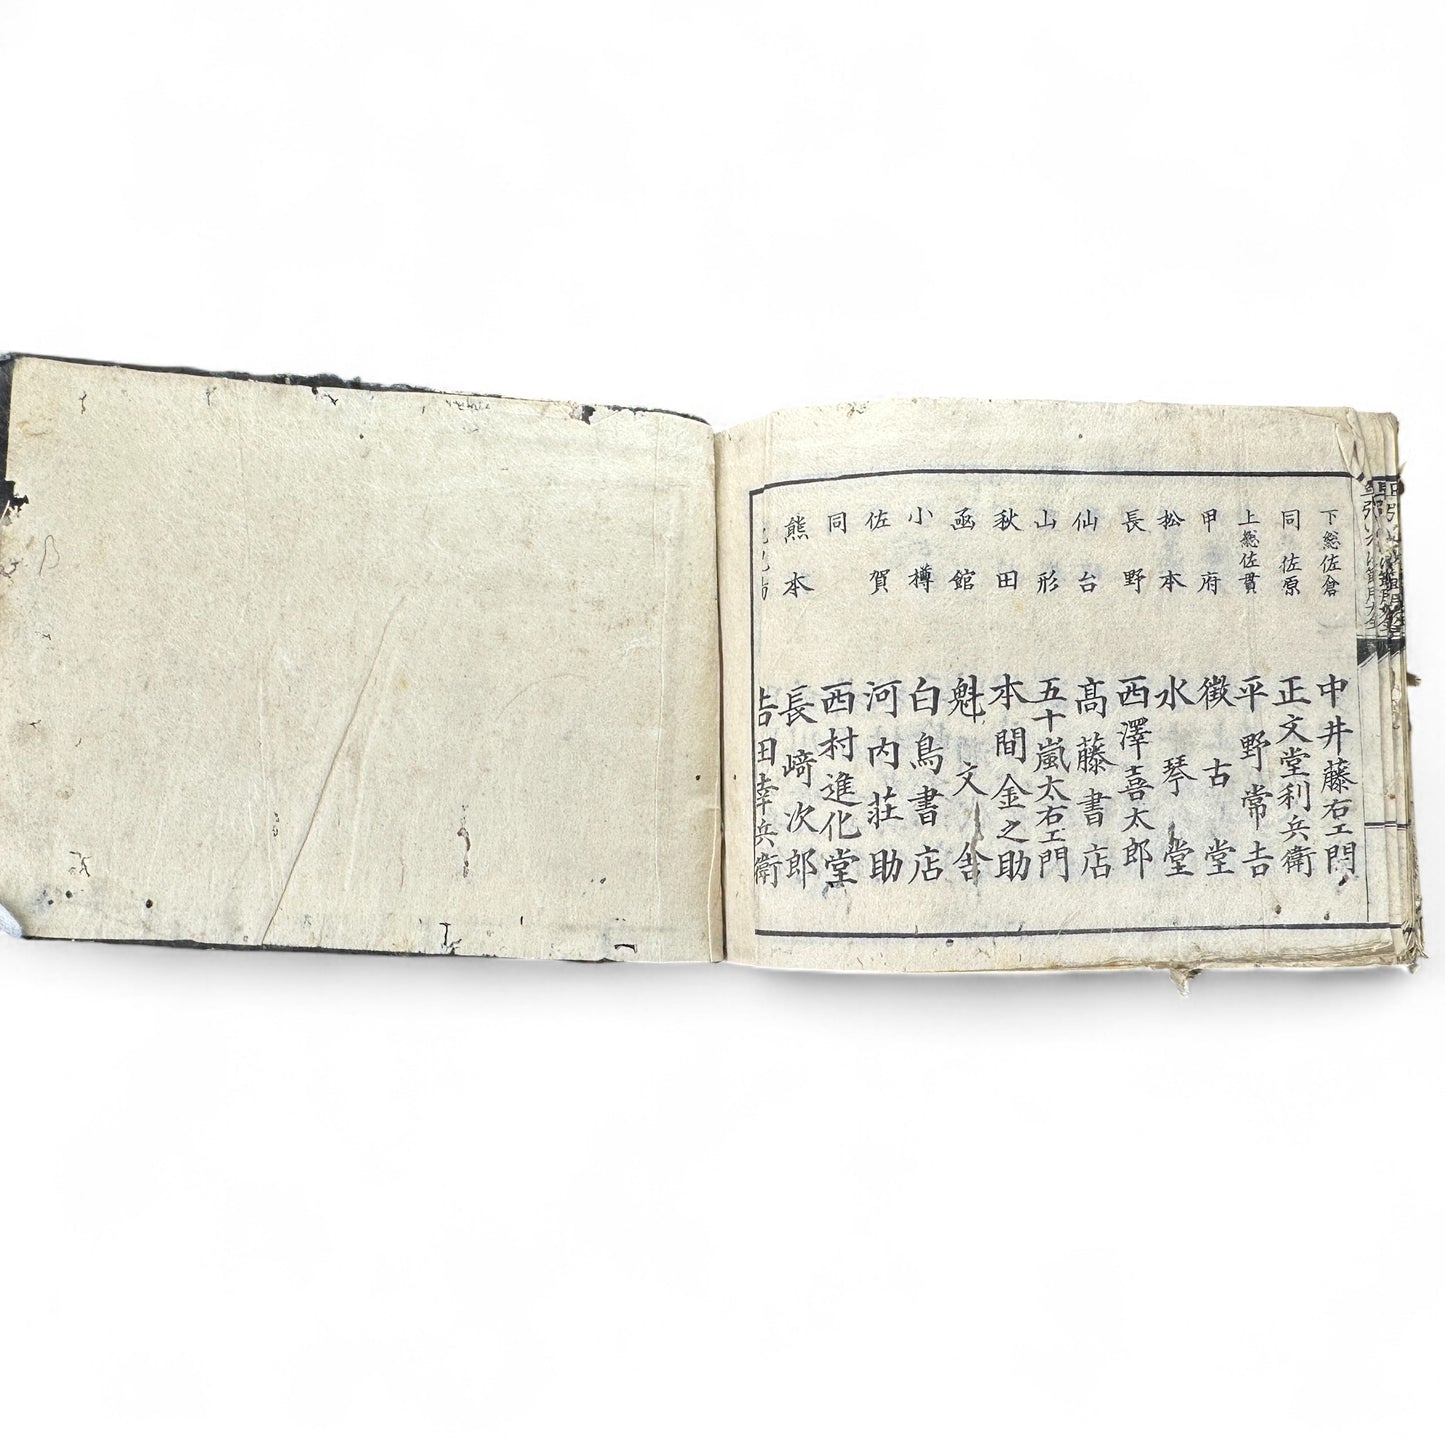 下総佐倉 中井藤右エ門
同 佐原 正文堂利兵衛
上総佐貫 平野常吉
甲府 徴古堂
松本 水琴堂
長野 西澤喜太郎
仙台 髙藤書店
山形 五十嵐太右エ門
秋田 本間金之助
函館 魁文舎
小樽 白鳥書店
佐賀 河内荘助
同 西村進化堂
熊本 長﨑次郎
吉田幸兵衛